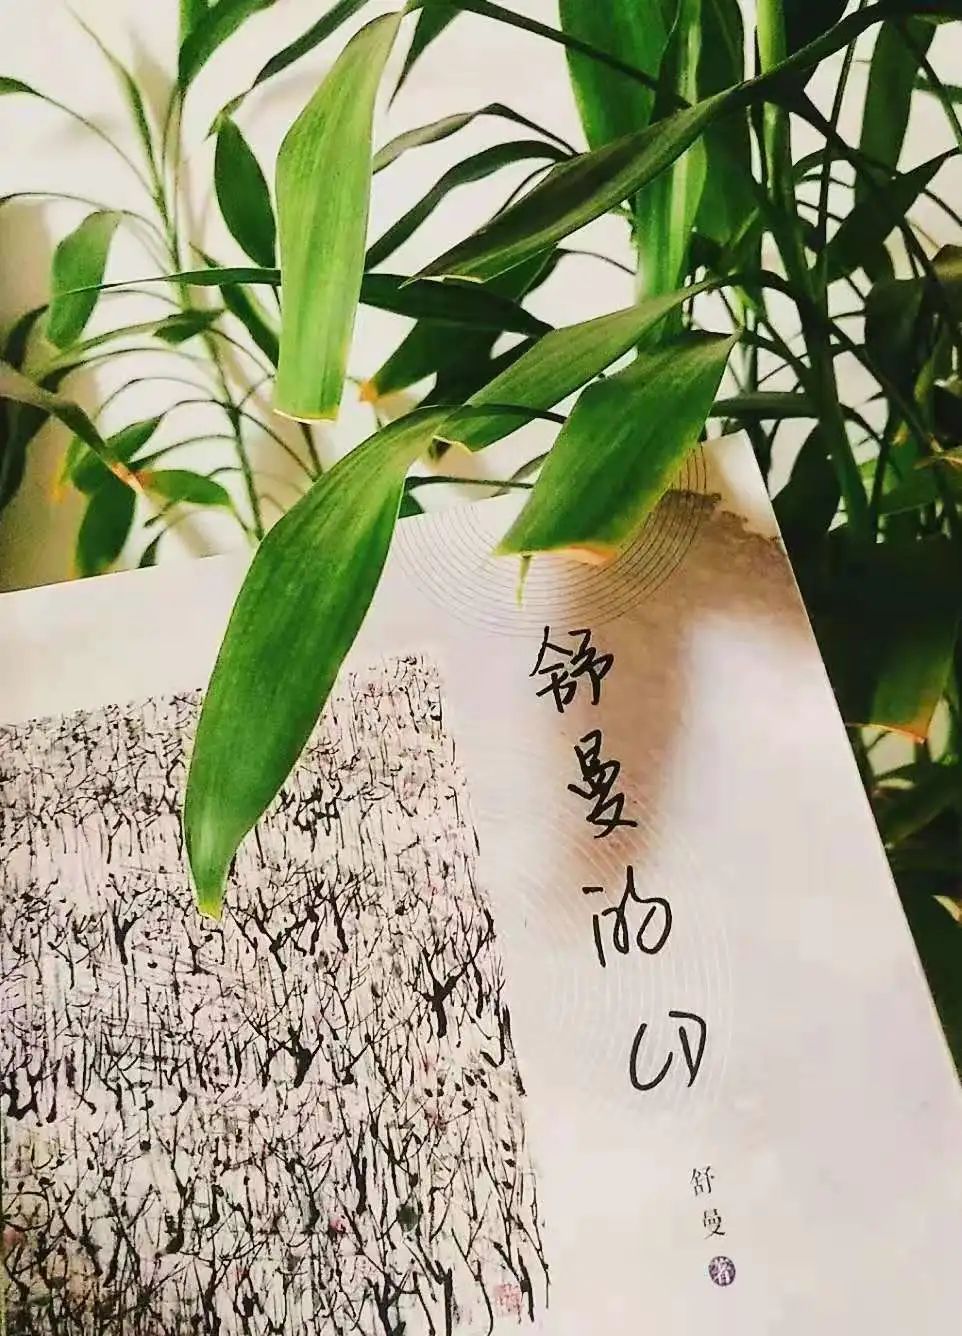 舒曼的CD
舒曼 著